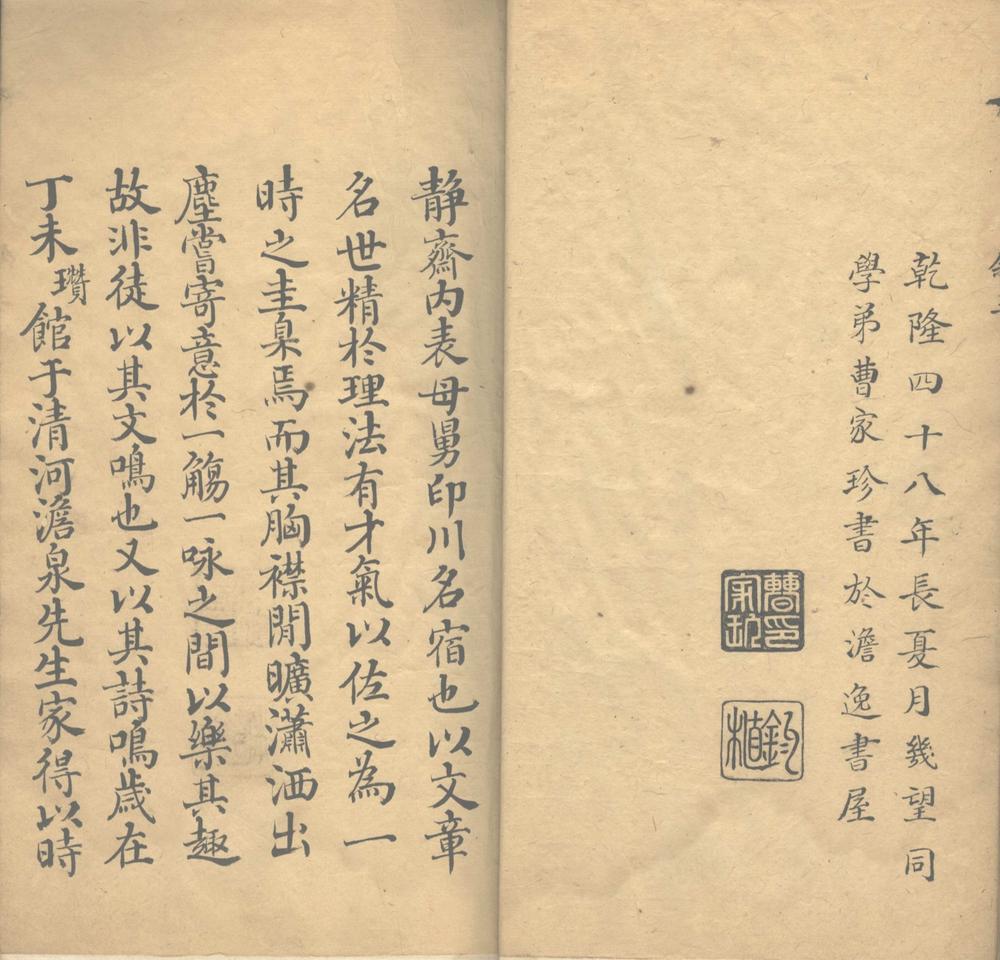 乾隆四十八年長夏月幾望同
學弟曹家珍書於澹逸書屋
曹印家珍
静齋内表母舅印川名宿也以文章
名世精於理法有才氣以佐之為一
時之圭臬焉而其胸襟閒曠瀟洒出
塵嘗寄意於一觴一咏之間以樂其趣
故非徒以其文鳴也又以其詩鳴歲在
丁未瓚館于清河澹泉先生家得以時